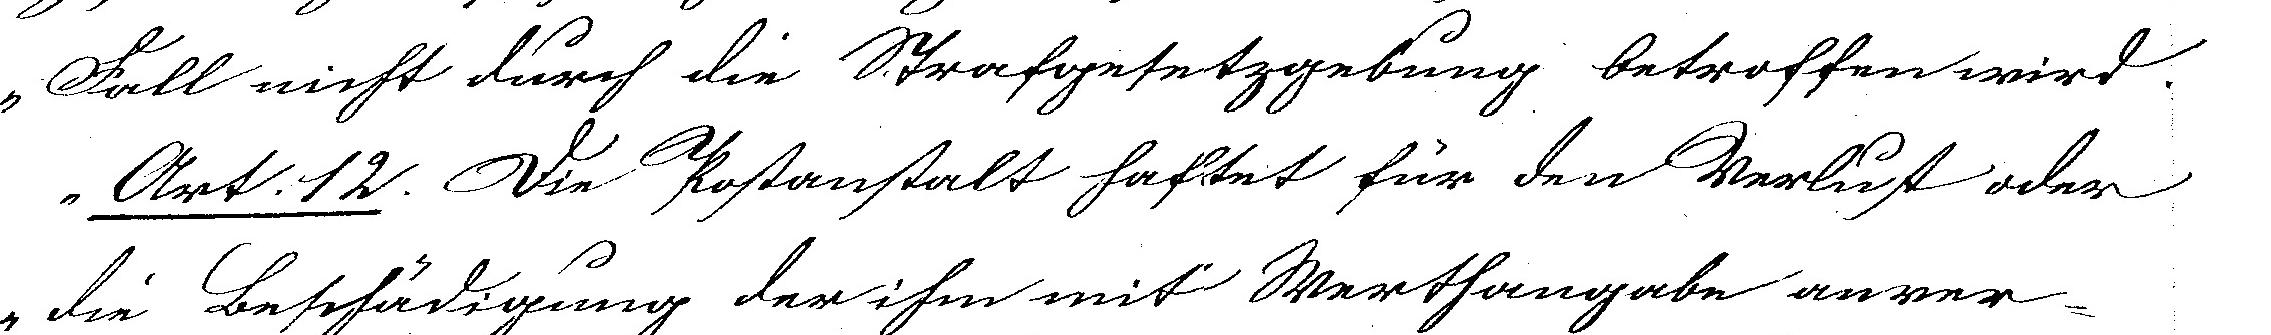 „Fall nicht durch die Strafgesetzgebung betroffen wird.
„Art. 12. Die Postanstalt haftet für den Verlust oder
„die Beschädigung der ihm mit Werthangabe anver=